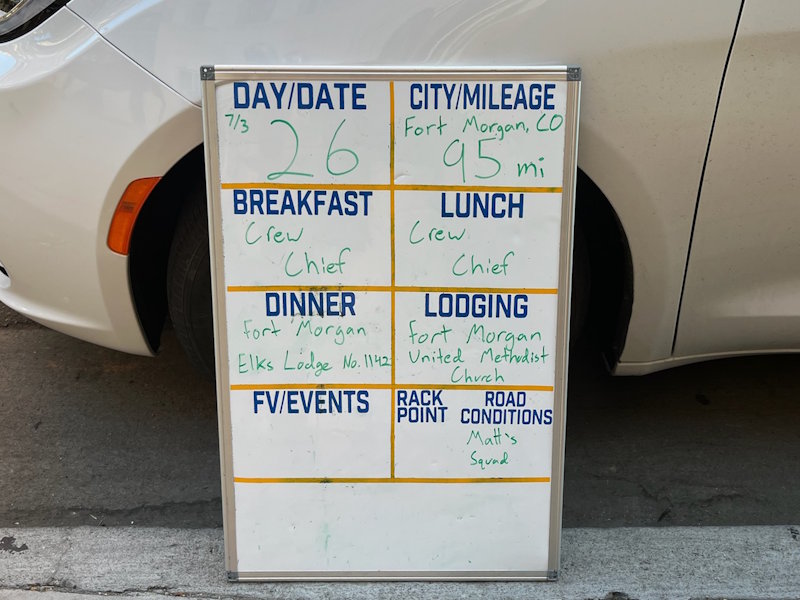 DAY/DATE
7/3
26
CITY/MILEAGE
Fort Morgan, CO
95 mi
BREAKFAST
Crew
Chief
LUNCH
Crew
Chief
DINNER
Fort Morgan
Elks Lodge No. 1142
LODGING
Fort Morgan
United Methodist
Church
FV/EVENTS
RACK
POINT
ROAD
CONDITIONS
Matt's
Squad